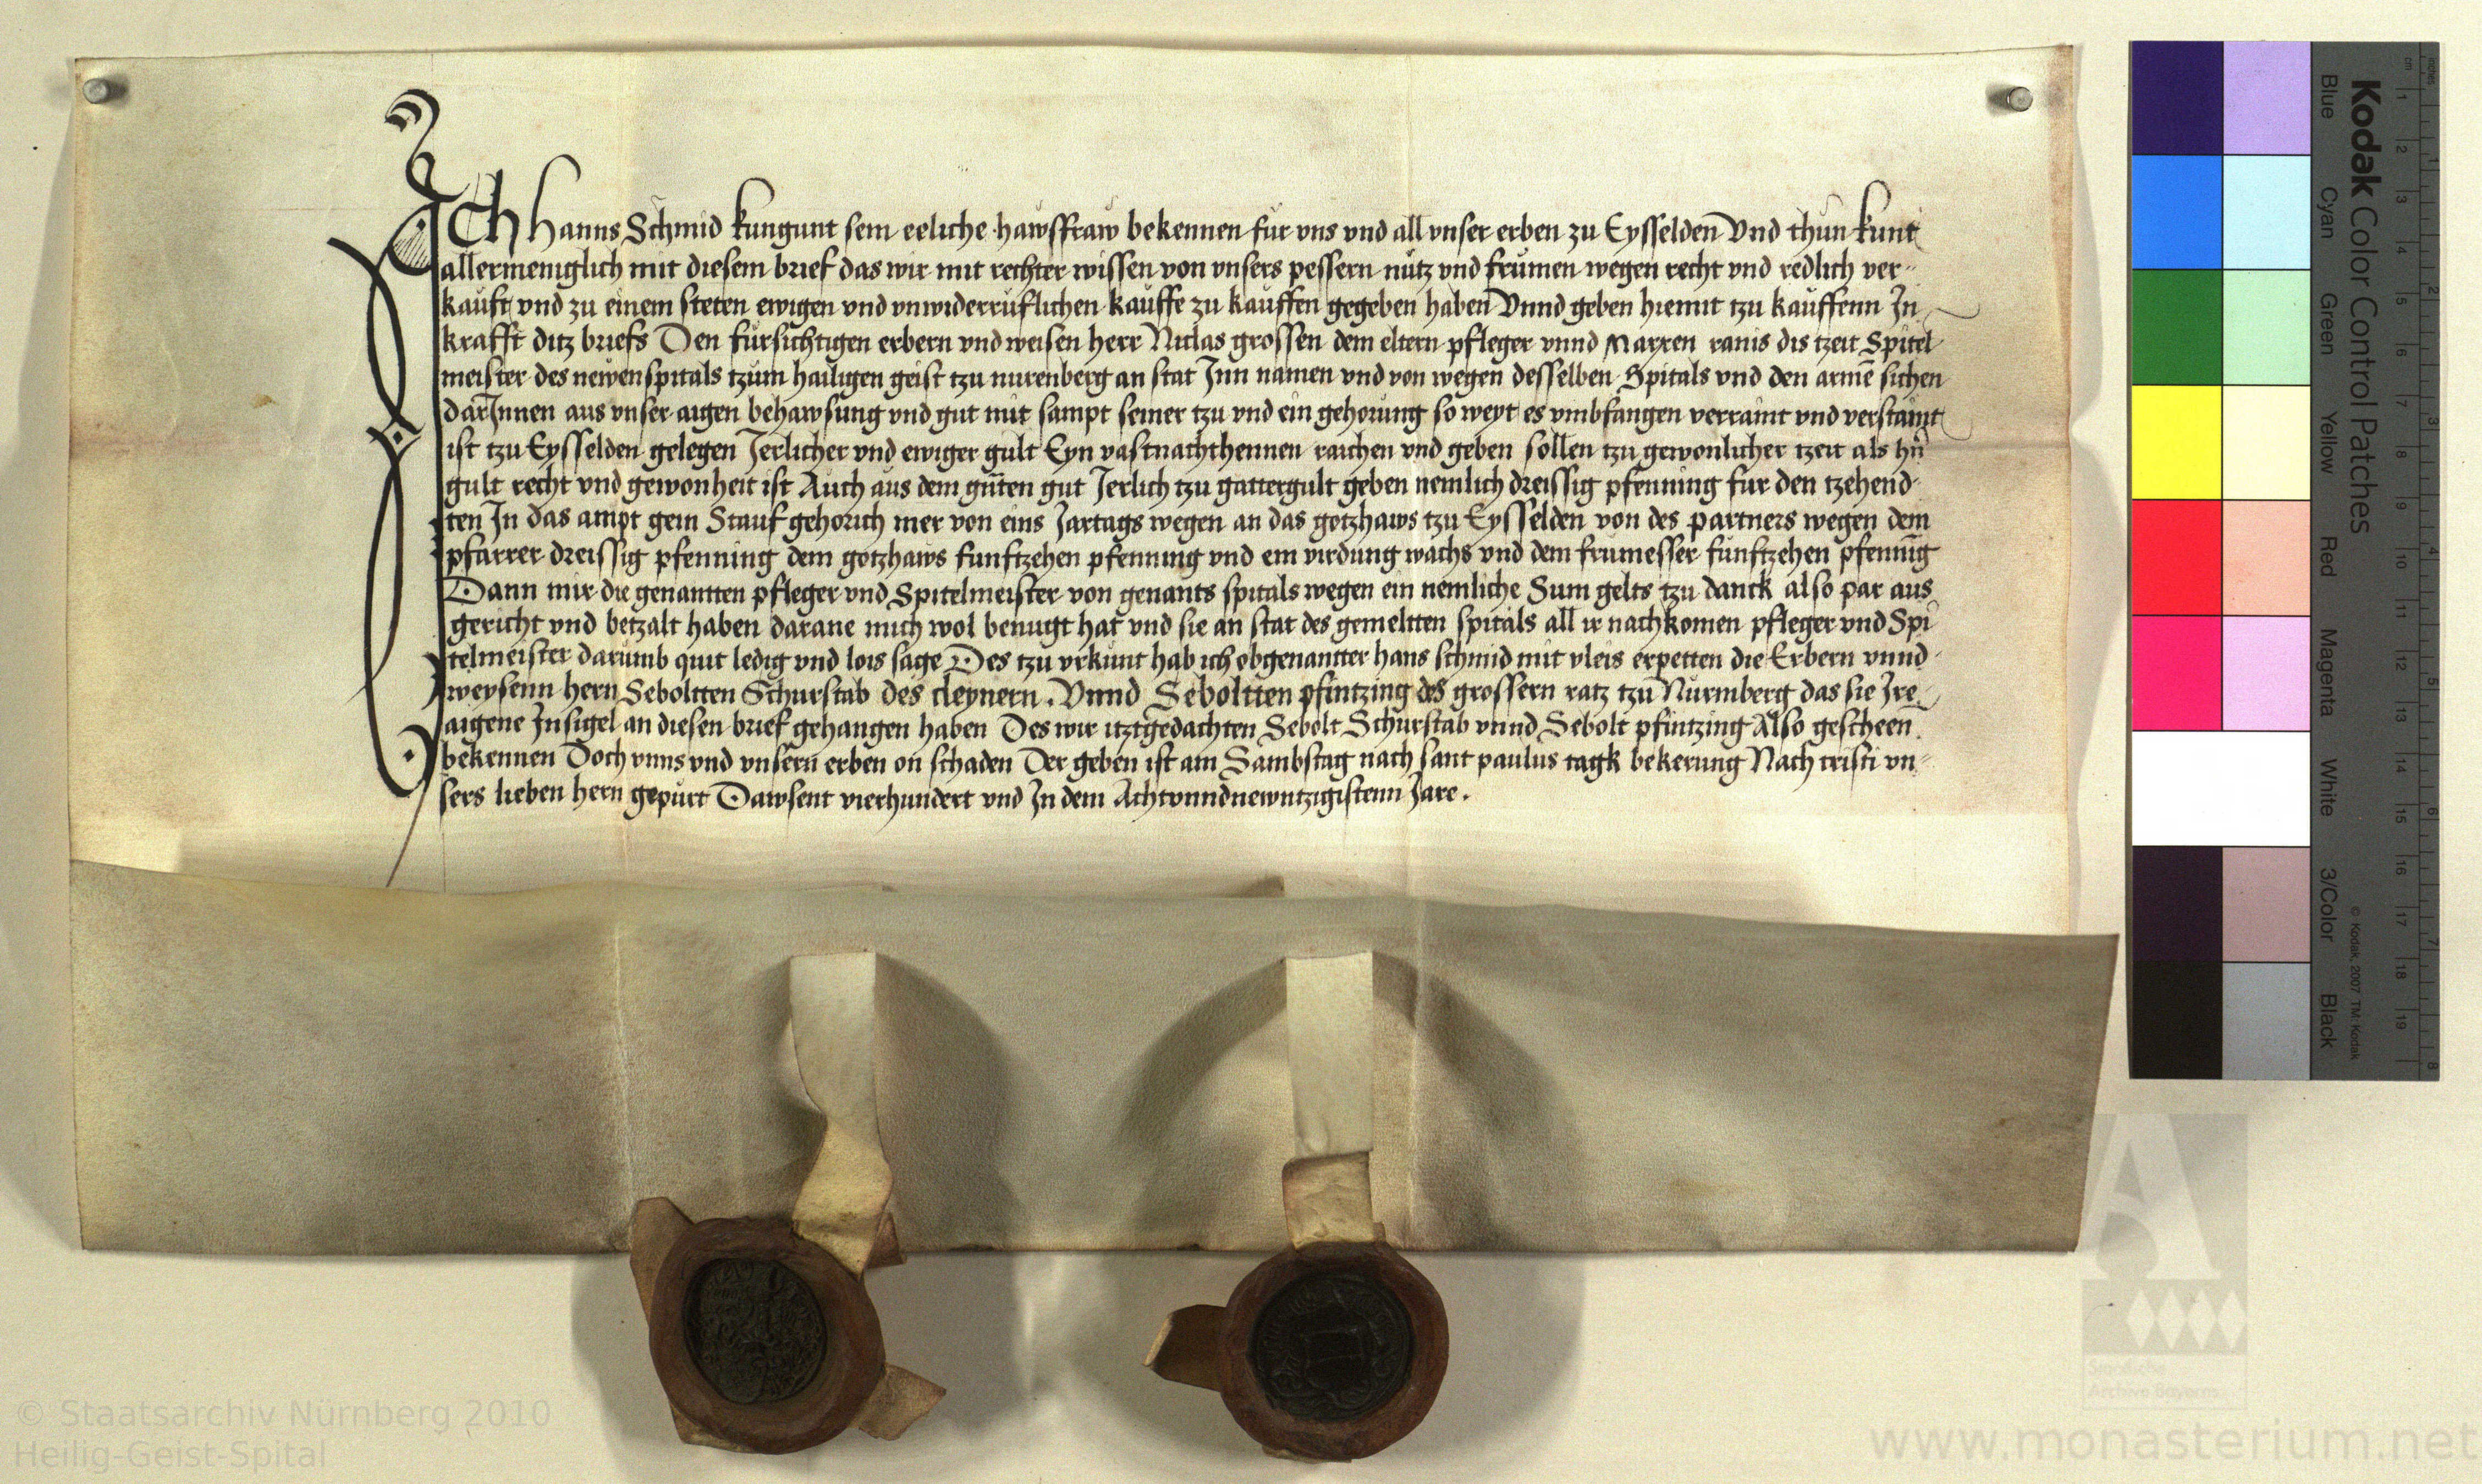 ICh Hanns Schmid kungunt sein eeliche hawsfraw bekennen für vns vnd all vnser erben zu Eysselden Vnd thun kunt
allermeniglich mit diesem brief das wir mit rechter wissen von vnsers pessern nutz vnd frumen wegen recht vnd redlich ver-
kauft vnd zu einem steten ewigen vnd vnwiderruflichen kauffe zu kauffen gegeben haben Vnnd geben hiemit tzu kauffenn In
krafft ditz briefs Den fursichtigen erbern vnd weisen herr Niclas grossen dem eltern pfleger vnnd Marxen ranis dis tzeit Spitel
meister des newen spitals tzum hailigen geist tzu nurenberg an stat Inn namen vnd von wegen desselben Spitals vnd den armē sichen
darInnen aus vnser aigen behawsung vnd gut mit sampt seiner tzu vnd ein gehorung so weyt es vmbfangen verraint vnd verstaint
ist tzu Eysselden gelegen Jerlicher vnd ewiger gult Eyn vastnachthennen raichen vnd geben sollen tzu gewonlicher tzeit als
gult recht vnd gewonheit ist Auch aus dem guten gut Jerlich tzu gattergult geben nemlich dreissig pfenning fur den tzehend-
ten In das ampt gein Stauf gehorich mer von eins Jartags wegen an das gotzhaws tzu Eysselden von des partners wegen dem
pfarrer dreissig pfenning dem gotzhaws funftzehen pfenning vnd ein virdung wachs vnd dem frumesser funftzehen pfennīg
Dann mir die genantten pfleger vnd Spitelmeister von genants spitals wegen ein nemliche Sum gelts tzu danck also par aus
gericht vnd betzalt haben darane mich wol benugt hat vnd sie an stat des gemeltten spitals all ir nachkomen pfleger vnd Spi
telmeister darumb quit ledig vnd lois sage Des tzu vrkunt hab ich obgenantter hans schmid mit vleis erpetten die Erbern vnnd
weysenn hern Seboltten Schurstab des cleynern. Vnnd Seboltten pfintzing des grossern ratz tzu Nurmberg das sie Ire
aigene Insigel an diesen brief gehangen haben Des wir itztgedachten Sebolt Schurstab vnnd Sebolt pfintzing Also gescheen
bekennen Doch vnns vnd vnsern erben on schaden Der geben ist am Sambstag nach sant paulus tagk bekerung Nach cristi vn-
sers lieben hern gepurt Dawsent vierhundert vnd In dem Achtvnndnewntzigistenn Jare.
Kodak Color Control Patches
Blue Cyan Green Yellow Red Magenta White 3/Color Black
© Kodak, 2007 TM: Kodak
cm 1 2 3 4 5 6 7 8 9 10 11 12 13 14 15 16 17 18 19
inches 1 2 3 4 5 6 7 8
Staatliche
Archive Bayerns
© Staatsarchiv Nürnberg 2010
Heilig-Geist-Spital
www.monasterium.net